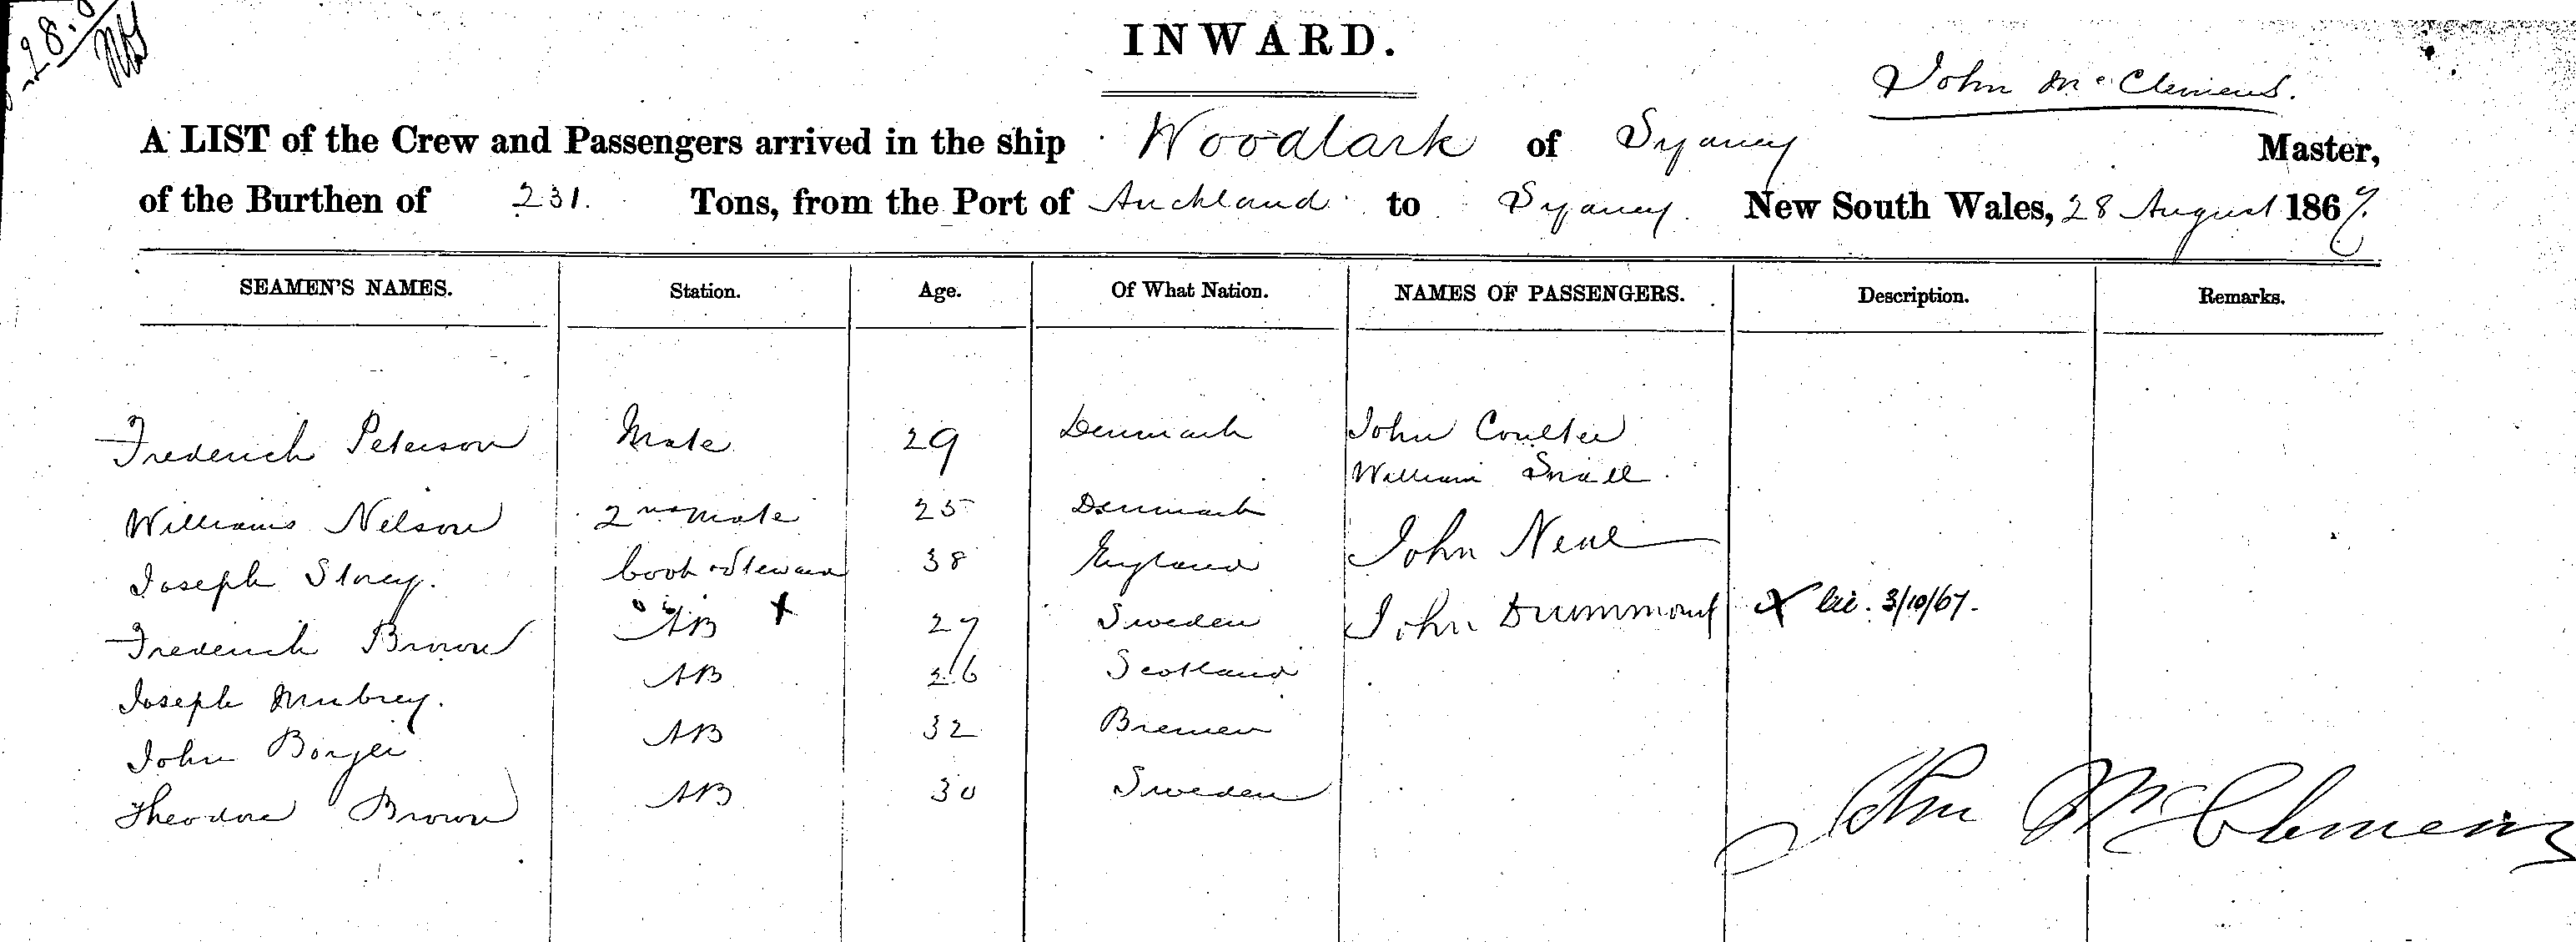 28.
INWARD.
John McClemens.
A LIST of the Crew and Passengers arrived in the ship Woodlark of Sydney Master,
of the Burthen of 231. Tons, from the Port of Auckland to Sydney New South Wales, 28 August 1867.
SEAMEN'S NAMES. Station. Age. Of What Nation. NAMES OF PASSENGERS. Description. Remarks.
Frederich Peterson Mate 29 Denmark John Coulter
William Snall
Williams Nelson 2nd Mate 25 Denmark
John Neal
Joseph Storey. Cook & Steward 38 England
John Drummond X lic. 3/10/67.
Frederich Brown AB X 27 Sweden
Joseph Mubrey. AB 26 Scotland
John Borger AB 32 Bremen
Theodore Brown AB 30 Sweden
John McClemens